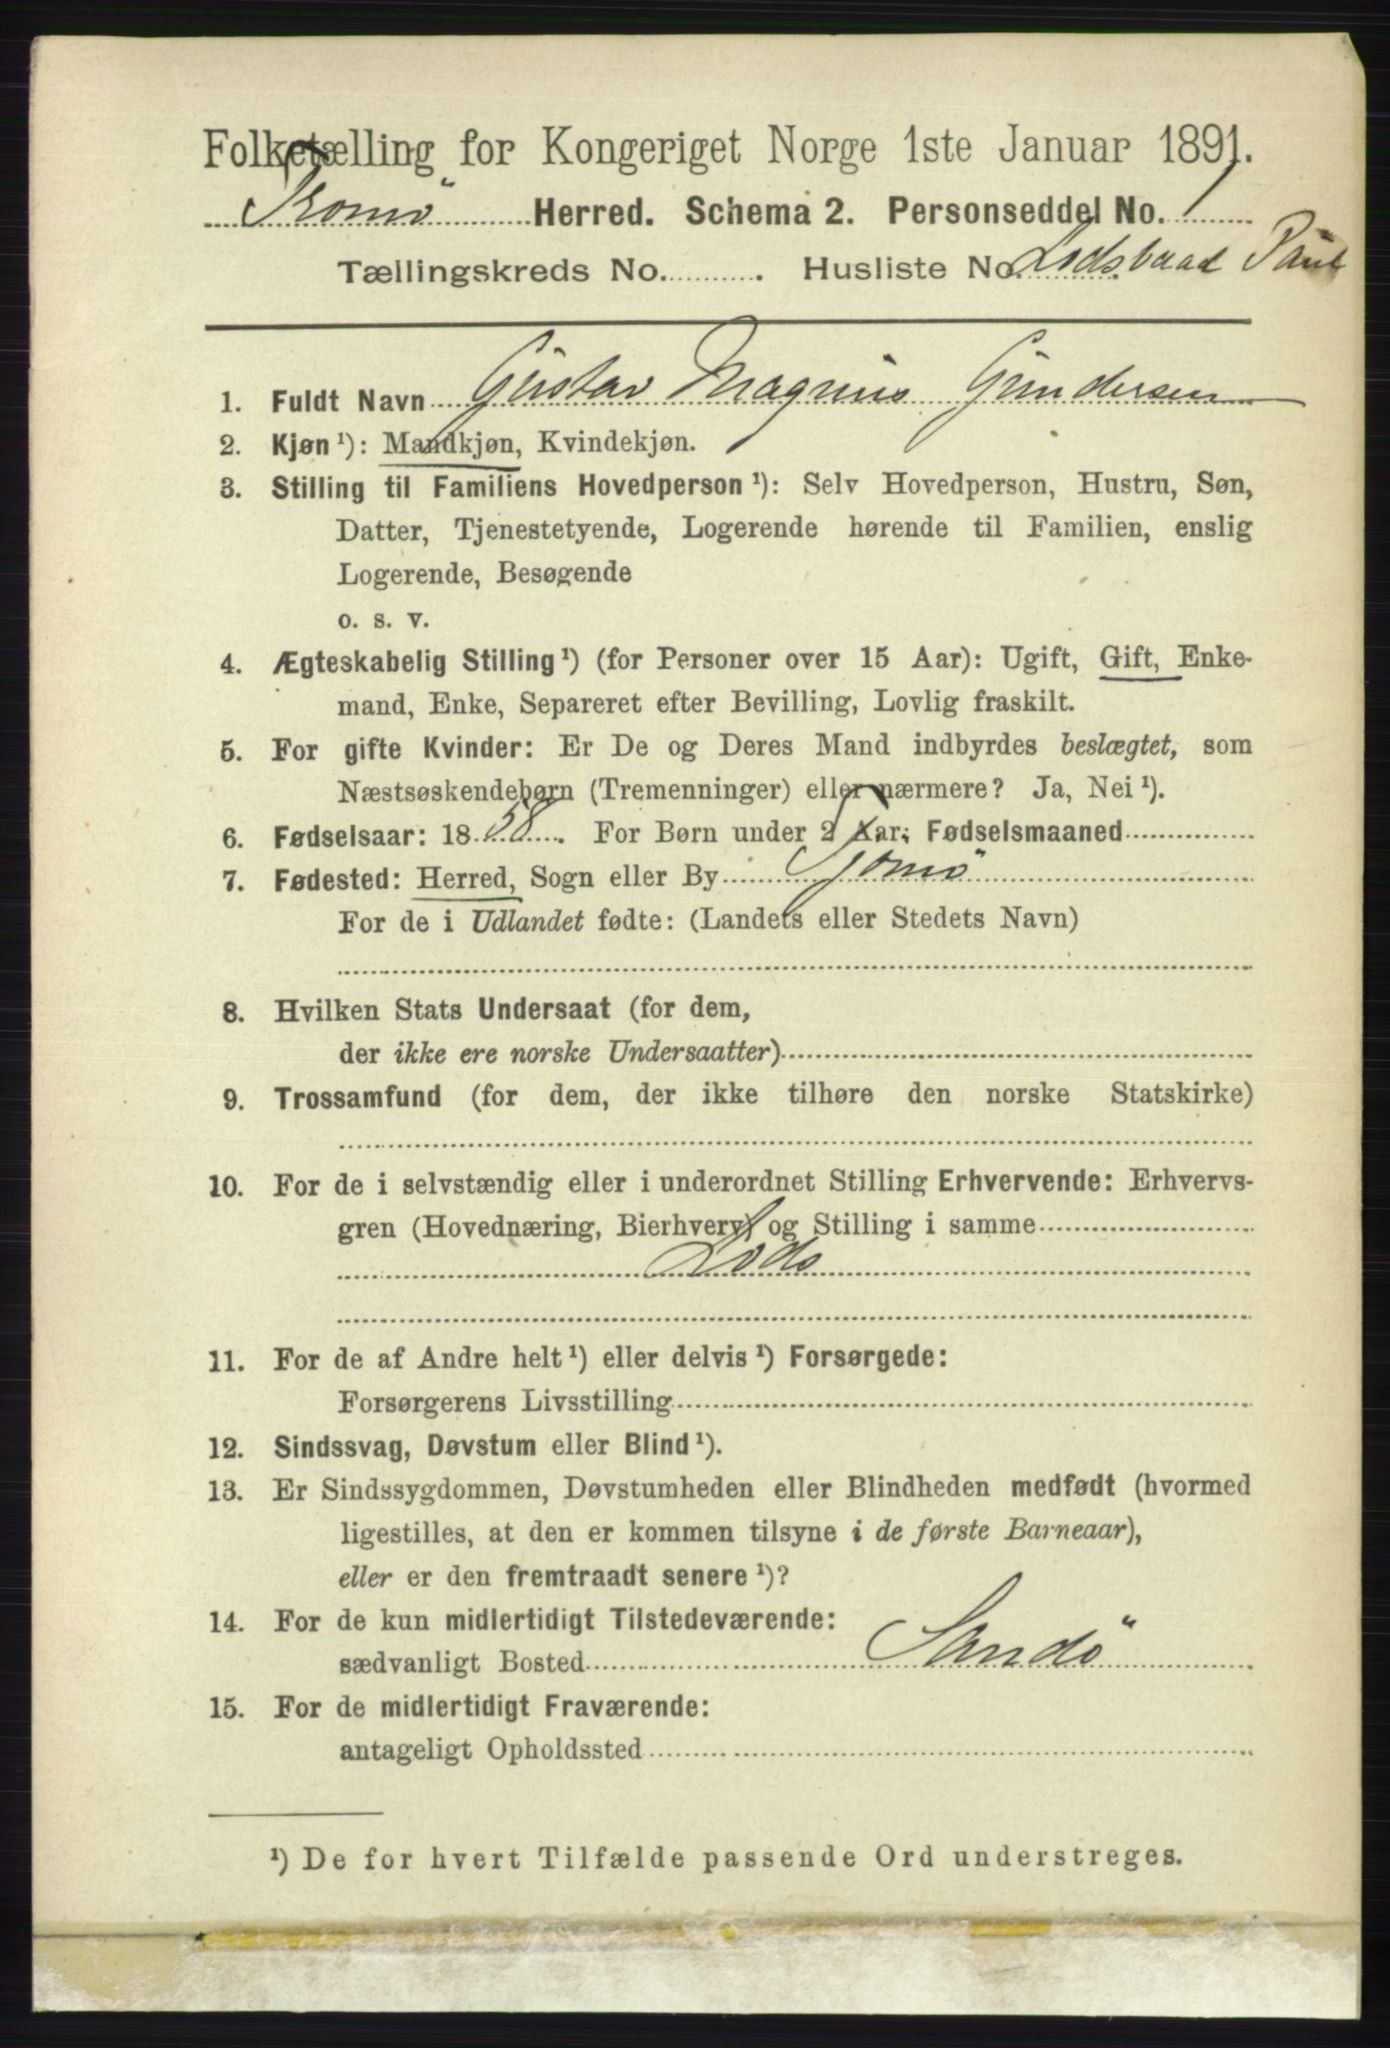 Folketælling for Kongeriget Norge 1ste Januar 1891.
Tromö Herred. Schema 2. Personseddel No. 1
Tællingskreds No. . Husliste No. Lodsbaad Paul
1. Fuldt Navn Gustav Magnus Gundersen
2. Kjøn ¹): Mandkjøn, Kvindekjøn.
3. Stilling til Familiens Hovedperson ¹): Selv Hovedperson, Hustru, Søn,
Datter, Tjenestetyende, Logerende hørende til Familien, enslig
Logerende, Besøgende
o. s. v.
4. Ægteskabelig Stilling ¹) (for Personer over 15 Aar): Ugift, Gift, Enke-
mand, Enke, Separeret efter Bevilling, Lovlig fraskilt.
5. For gifte Kvinder: Er De og Deres Mand indbyrdes beslægtet, som
Næstsøskendebørn (Tremenninger) eller nærmere? Ja, Nei ¹).
6. Fødselsaar: 1858. For Børn under 2 Aar: Fødselsmaaned
7. Fødested: Herred, Sogn eller By Tjömö
For de i Udlandet fødte: (Landets eller Stedets Navn)
8. Hvilken Stats Undersaat (for dem,
der ikke ere norske Undersaatter)
9. Trossamfund (for dem, der ikke tilhøre den norske Statskirke)
10. For de i selvstændig eller i underordnet Stilling Erhvervende: Erhvervs-
gren (Hovednæring, Bierhverv) og Stilling i samme
Lods
11. For de af Andre helt ¹) eller delvis ¹) Forsørgede:
Forsørgerens Livsstilling
12. Sindssvag, Døvstum eller Blind ¹).
13. Er Sindssygdommen, Døvstumheden eller Blindheden medfødt (hvormed
ligestilles, at den er kommen tilsyne i de første Barneaar),
eller er den fremtraadt senere ¹)?
14. For de kun midlertidigt Tilstedeværende:
sædvanligt Bosted Sandö
15. For de midlertidigt Fraværende:
antageligt Opholdssted
¹) De for hvert Tilfælde passende Ord understreges.